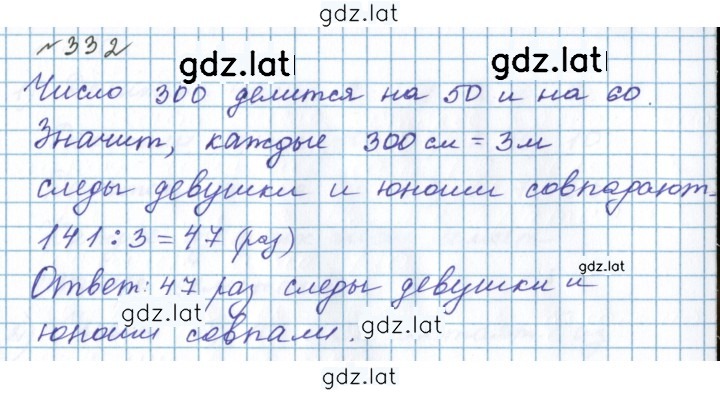 gdz.lat
№332
gdz.lat gdz.lat
Число 300 делится на 50 и на 60.
Значит, каждые 300 см = 3 м
следы девушки и юноши совпадают.
141 : 3 = 47 (раз)
gdz.lat
Ответ: 47 раз следы девушки и
gdz.lat gdz.lat
юноши совпали.
gdz.lat